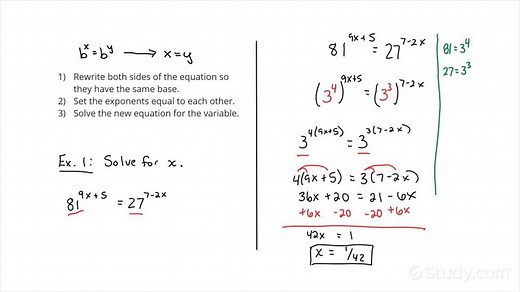 b^x = b^y ⟶ x = y
1) Rewrite both sides of the equation so
they have the same base.
2) Set the exponents equal to each other.
3) Solve the new equation for the variable.
Ex. 1: Solve for x.
81^(9x+5) = 27^(7-2x)
81^(9x+5) = 27^(7-2x)
(3^4)^(9x+5) = (3^3)^(7-2x)
3^(4(9x+5)) = 3^(3(7-2x))
4(9x+5) = 3(7-2x)
36x + 20 = 21 - 6x
+6x -20 -20 +6x
42x = 1
x = 1/42
81 = 3^4
27 = 3^3
Study.com